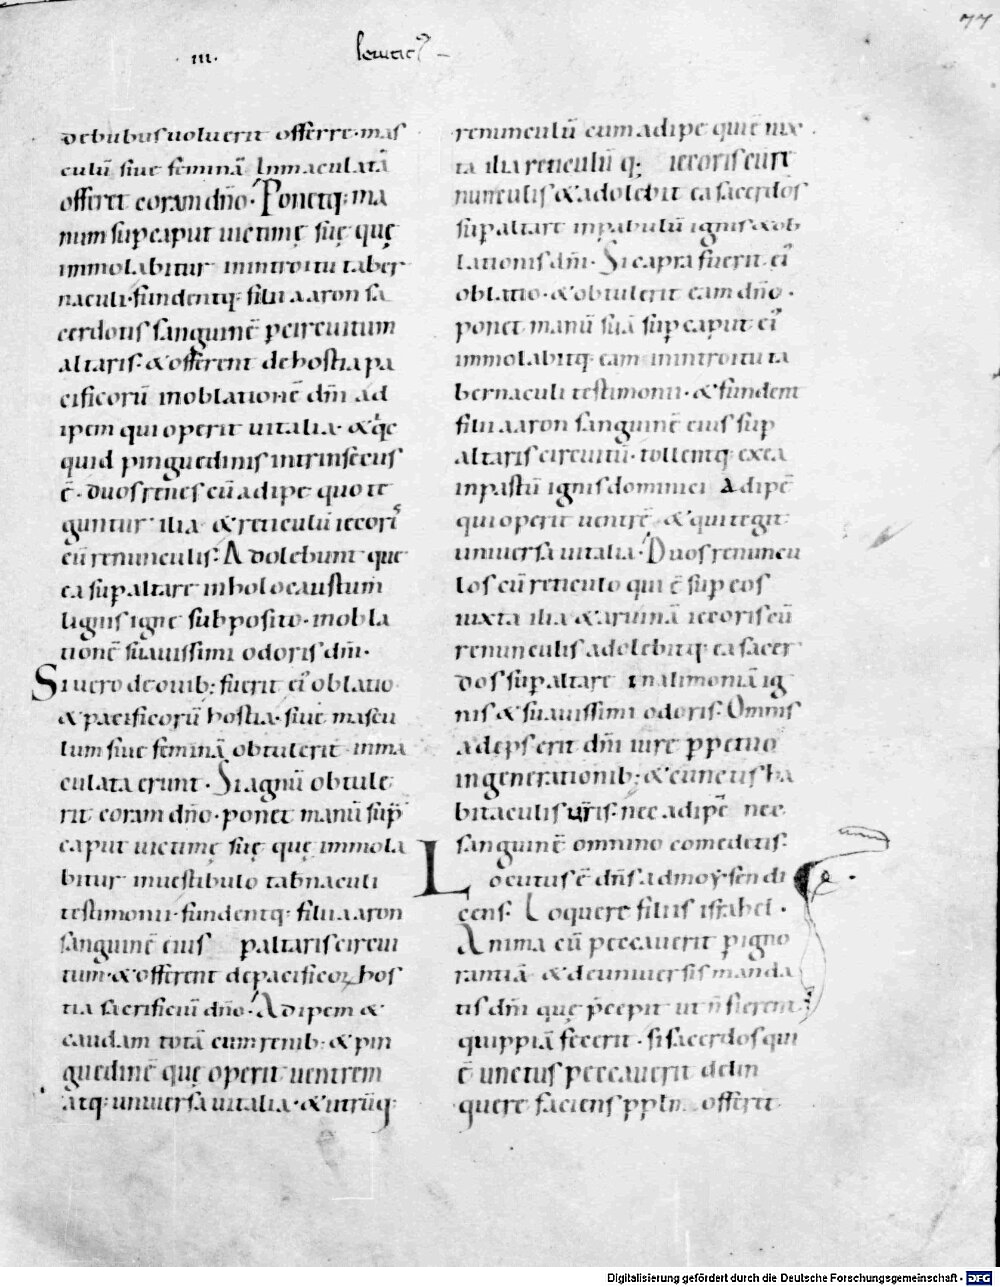 77
·III· leuitic᾽
de bubus uoluerit offerre· mas
culū siue feminā Inmaculatā
offeret coram dño· Ponetq; ma
num sup caput uictimę suę quę
immolabitur inintroitu taber
naculi· fundentq; filii aaron sa
cerdotis sanguinē p circuitum
altaris· & offerent de hostia pa
cificorū in oblationē dn̄i ad
ipem qui operit uitalia· & qͥc
quid pinguedinis intrinsecus
ē· duos renes cū adipe quo te
guntur ilia & reticulū iecoris
cū renunculis· Adolebunt que
ea sup altare inholocaustum
lignis igne subposito· in obla
tionē suauissimi odoris dn̄i·
Si uero de ouib; fuerit ei᾽ oblatio
& pacificorū hostia· siue mascu
lum siue feminā obtulerit inma
culata erunt· Si agnū obtule
rit coram dño· ponet manū sup
caput uictimę suę quę immola
bitur inuestibulo tabnaculi
testimonii· fundentq; filii aaron
sanguinē eius p altaris circui
tum· & offerent de pacificoꝝ hos
tia sacrificiū dño· Adipem &
caudam totā cum renib; & pin
guedinē quę operit uentrem
atq; uniuersa uitalia· & utrūq;
renunculū cum adipe qui ē iux
ta ilia reticulū q; iecoris cum
nunculis & adolebit ea sacerdos
sup altare inpabulū ignis & ob
lationis dn̄i· Si capra fuerit ei᾽
oblatio· & obtulerit eam dño·
ponet manū suā sup caput ei᾽
immolabitq; eam inintroitu ta
bernaculi testimonii· & fundent
filii aaron sanguinē eius sup
altaris circuitū· tollentq; ex ea
inpastū ignis dominici Adipē
qui operit uentrē & qui tegit
uniuersa uitalia· Duos renuncu
los cū reticulo qui ē sup eos
iuxta ilia & aruinā iecoris cū
renunculis adolebitq; ea sacer
dos sup altare In alimoniā ig
nis & suauissimi odoris· Omnis
adeps erit dn̄i iure ppetuo
in generationib; & cunctis ha
bitaculis uris· nec adipē nec
sanguinē omnino comedetis·
Locutus ē dn̄s ad moysen di
cens· Loquere filiis israhel·
Anima cū peccauerit p igno
rantiā & de uniuersis manda
tis dn̄i quę pcepit ut n̄ fierent
quippiā fecerit· si sacerdos qui
ē unctus peccauerit delin
quere faciens pplm offeret
Digitalisierung gefördert durch die Deutsche Forschungsgemeinschaft - DFG